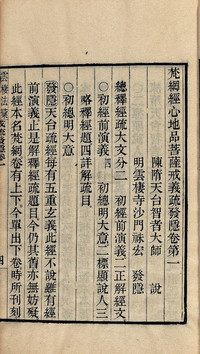 梵網經心地品菩薩戒義疏發隱卷第一
陳隋天台智者大師 說
明雲棲寺沙門祩宏 發隱
總釋經疏大文分二 初經前演義二正解經文
○初經前演義四 初總明大意二標顯說人三
略釋經題四詳解疏目
○初總明大意
發隱天台疏經每有五重玄義此經不說雖有經
前演義正是解經疏題目今仍其舊亦無妨礙
此經本名梵網卷有上下今單出下卷時所刊刻
雲棲法彙 疏發隱卷一